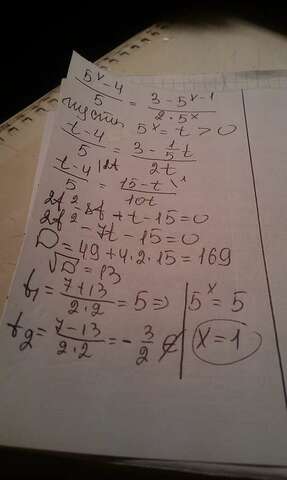 (5^x - 4)/5 = (3 - 5^(x-1))/(2·5^x)
пусть 5^x = t > 0
(t-4)/5 = (3 - 1/5 t)/(2t)
(t-4)/5 |2t = (15-t)/(10t) \1
2t² - 8t + t - 15 = 0
2t² - 7t - 15 = 0
D = 49 + 4·2·15 = 169
√D = 13
t₁ = (7+13)/(2·2) = 5 => | 5^x = 5
t₂ = (7-13)/(2·2) = -3/2 ∉ | x = 1